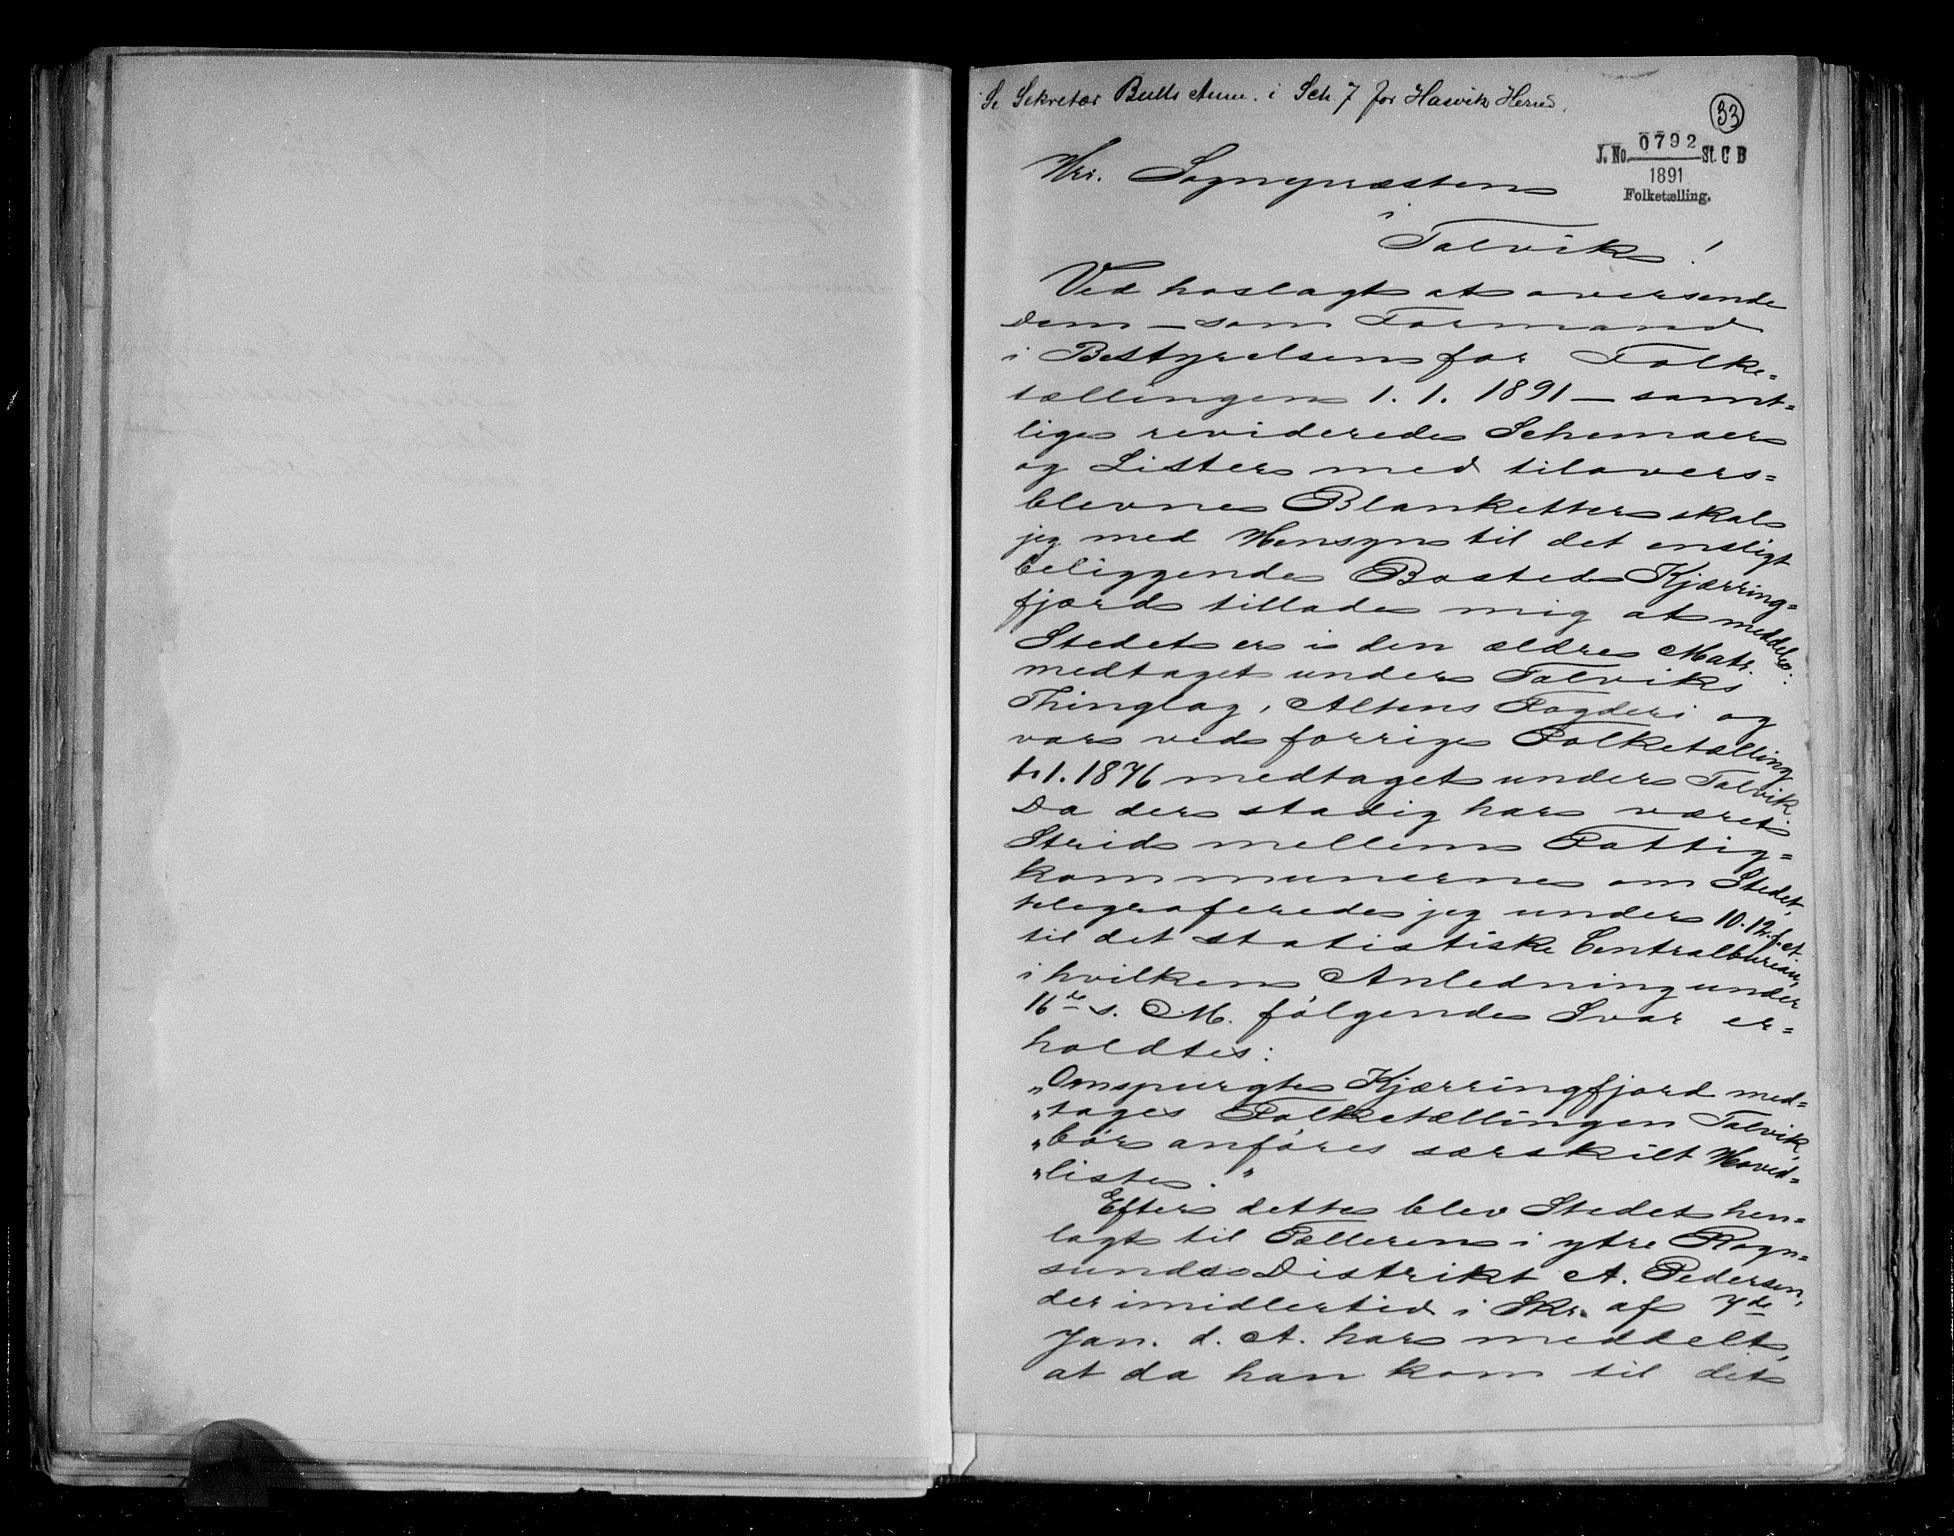 Se Sekretær Bulls Anm. i Sch 7 for Hasvik Herred.
33
J. No. 0792 St. C B
1891
Folketælling.
Hrr. Sognepræsten
i
Talvik!
Ved hoslagt at oversende
Dem — som Formand
i Bestyrelsen for Folke=
tællingen 1. 1. 1891 — samt=
lige reviderede Schemaer
og Lister med tilovers=
blevne Blanketter skal
jeg med Hensyn til det ensligt
beliggende Bosted Kjærring=
fjord tillade mig at meddele:
Stedet er i den ældre Matr.
medtaget under Talviks
Thinglag, Altens Fogderi og
var ved forrige Folketælling
1. 1. 1876 medtaget under Talvik.
Da der stadig har været
Strid mellem Fattig=
kommunerne om Stedet,
telegraferede jeg under 10. 12. f. A.
til det statistiske Centralbureau,
i hvilken Anledning under
16de s. M. følgende Svar er=
holdtes:
„Omspurgte Kjærringfjord med=
„tages Folketællingen Talvik,
„bør anføres særskilt Hoved=
„liste."
Efter dette blev Stedet hen=
lagt til Tælleren i ytre Rogn=
sunds Distrikt A. Pedersen,
der imidlertid i Skr. af 7de
Jan. d. A. har meddelt,
at da han kom til det